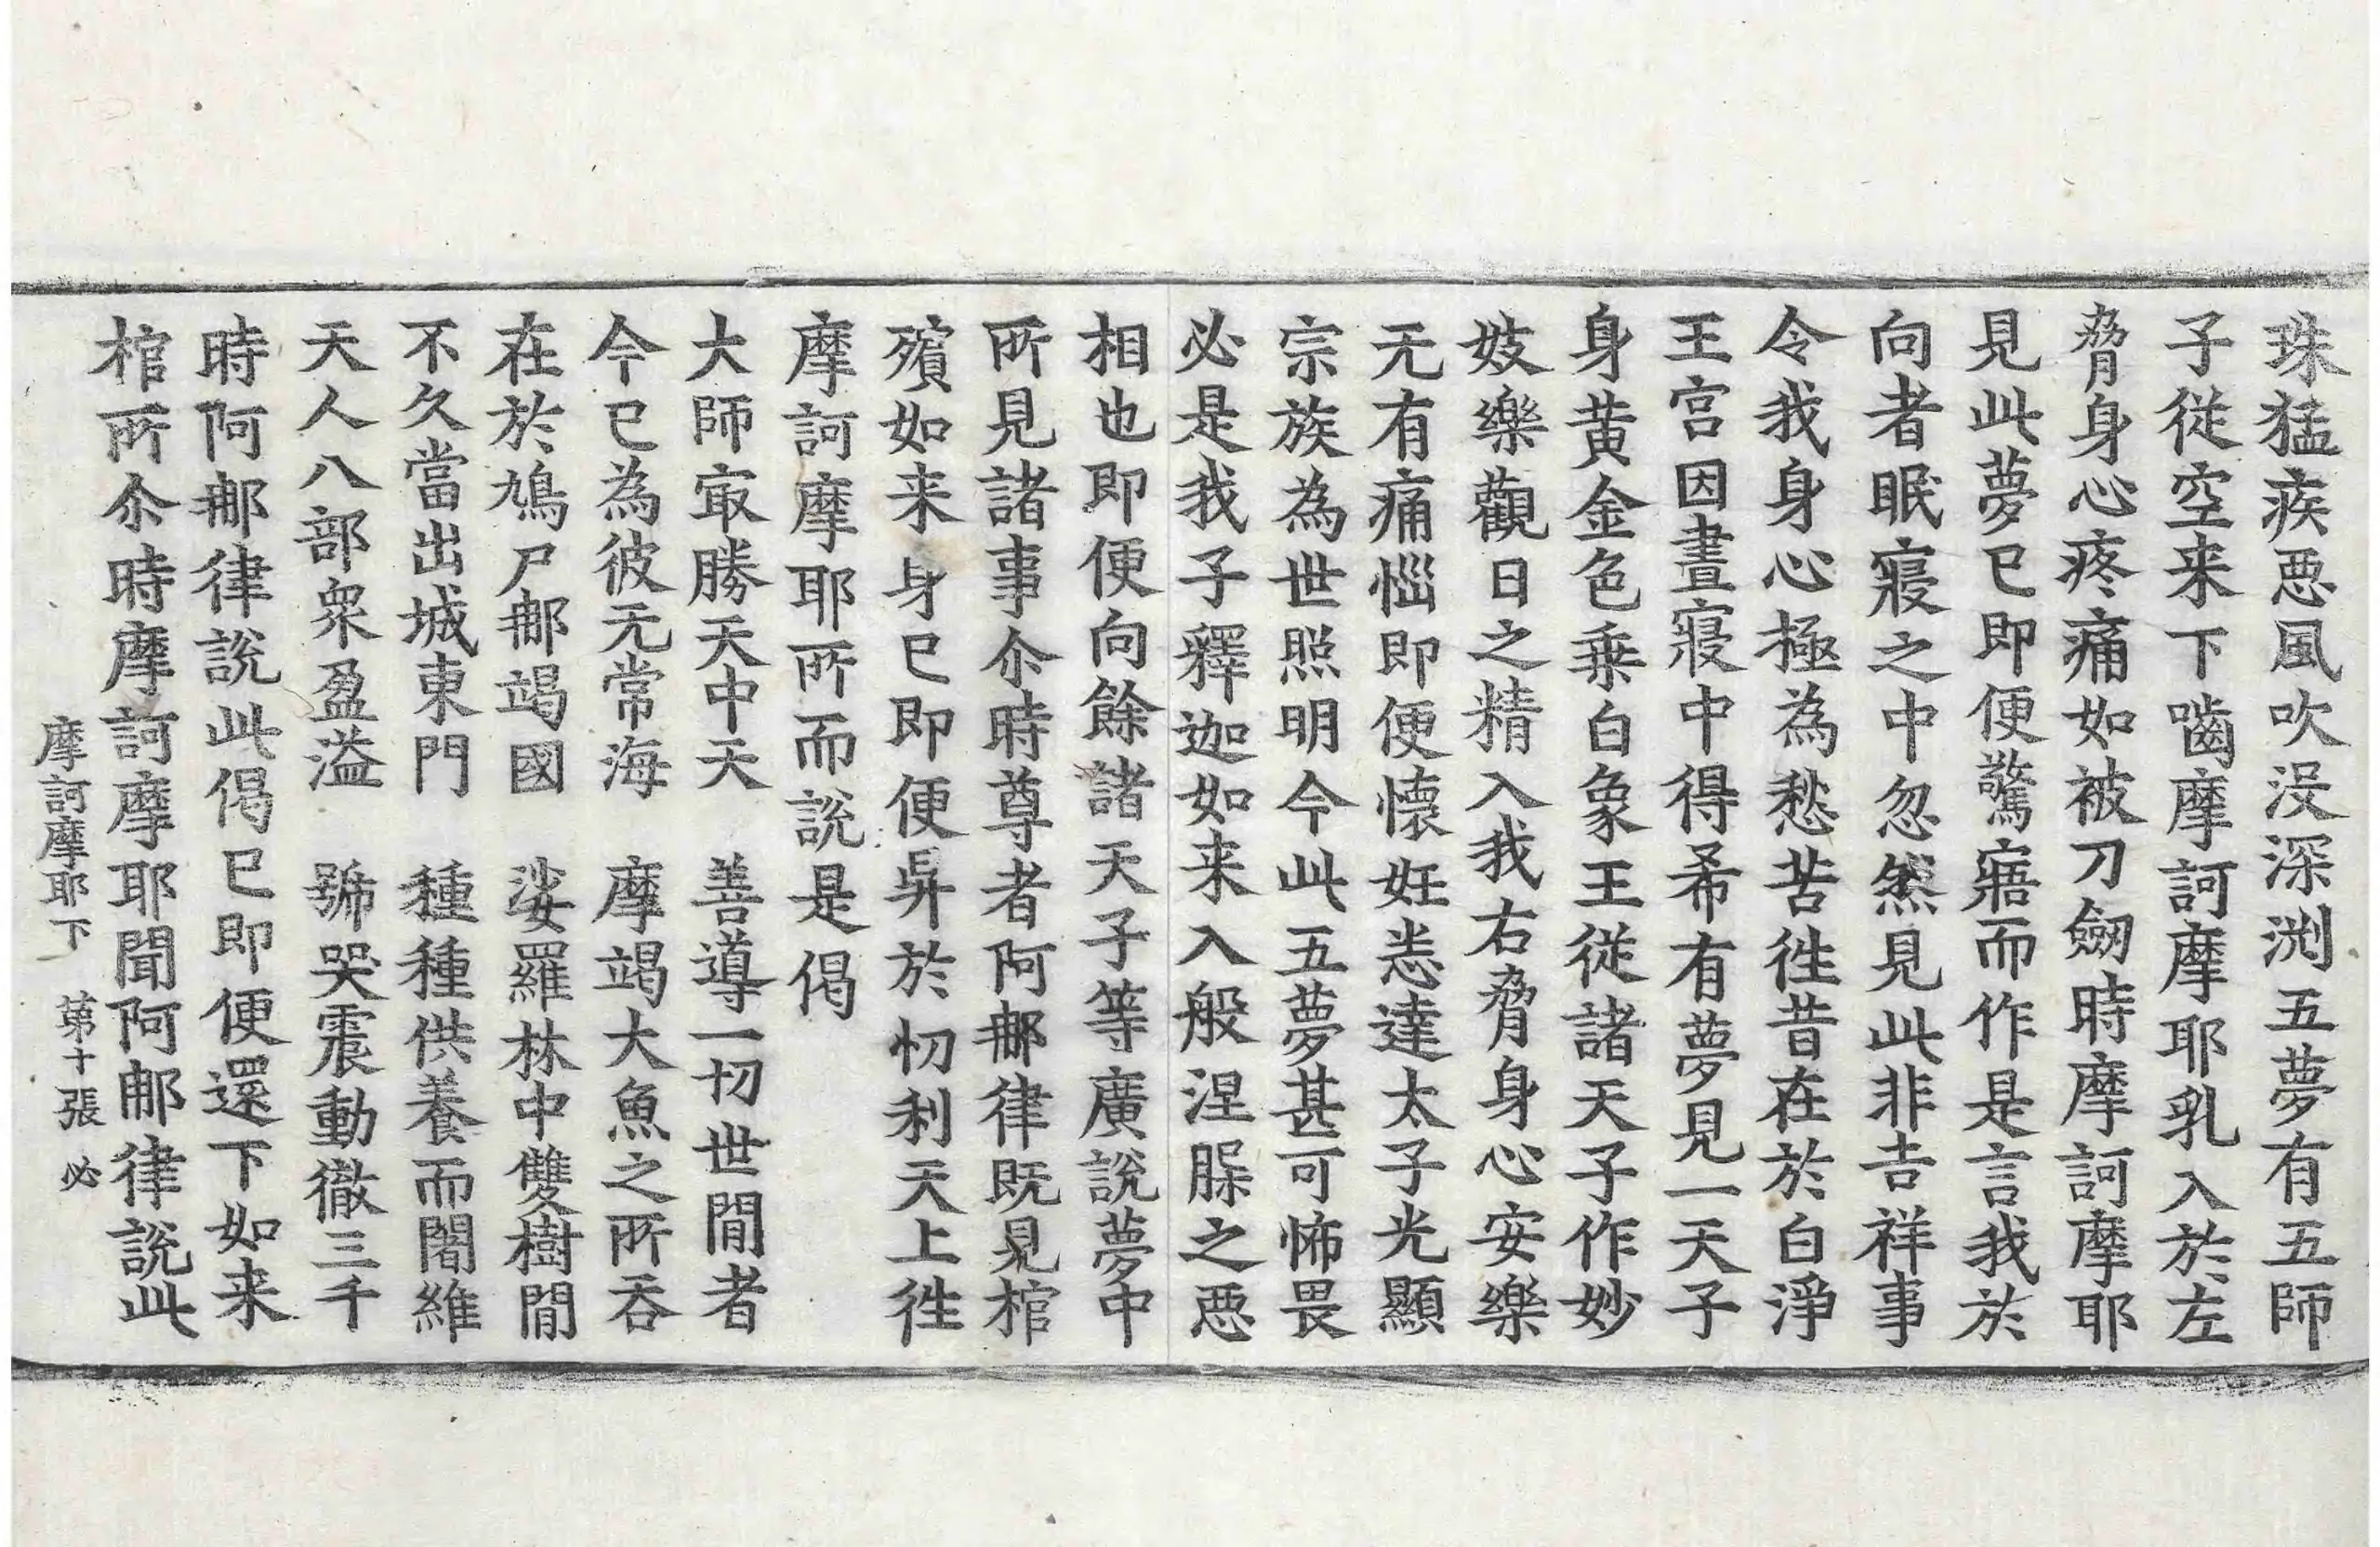 珠猛疾惡風吹没深渕五夢有五師
子從空来下嚙摩訶摩耶乳入於左
脅身心疼痛如被刀劒時摩訶摩耶
見此夢已即便驚寤而作是言我於
向者眠寢之中忽然見此非吉祥事
令我身心極為愁苦徃昔在於白淨
王宮因晝寢中得希有夢見一天子
身黄金色乗白象王從諸天子作妙
妓樂觀日之精入我右脅身心安樂
无有痛惱即便懐妊悉達太子光顯
宗族為世照明今此五夢甚可怖畏
必是我子釋迦如来入般涅䏶之惡
相也即便向餘諸天子等廣説夢中
所見諸事尒時尊者阿𨙻律既見棺
殯如来身已即便昇於忉利天上徃
摩訶摩耶所而説是偈
大師㝡勝天中天　善導一切世閒者
今已為彼无常海　摩竭大魚之所吞
在於鳩尸𨙻竭國　娑羅林中雙樹閒
不久當出城東門　種種供養而闍維
天人八部衆盈溢　號哭震動徹三千
時阿𨙻律説此偈已即便還下如来
棺所尒時摩訶摩耶聞阿𨙻律説此
摩訶摩耶下　第十張　必